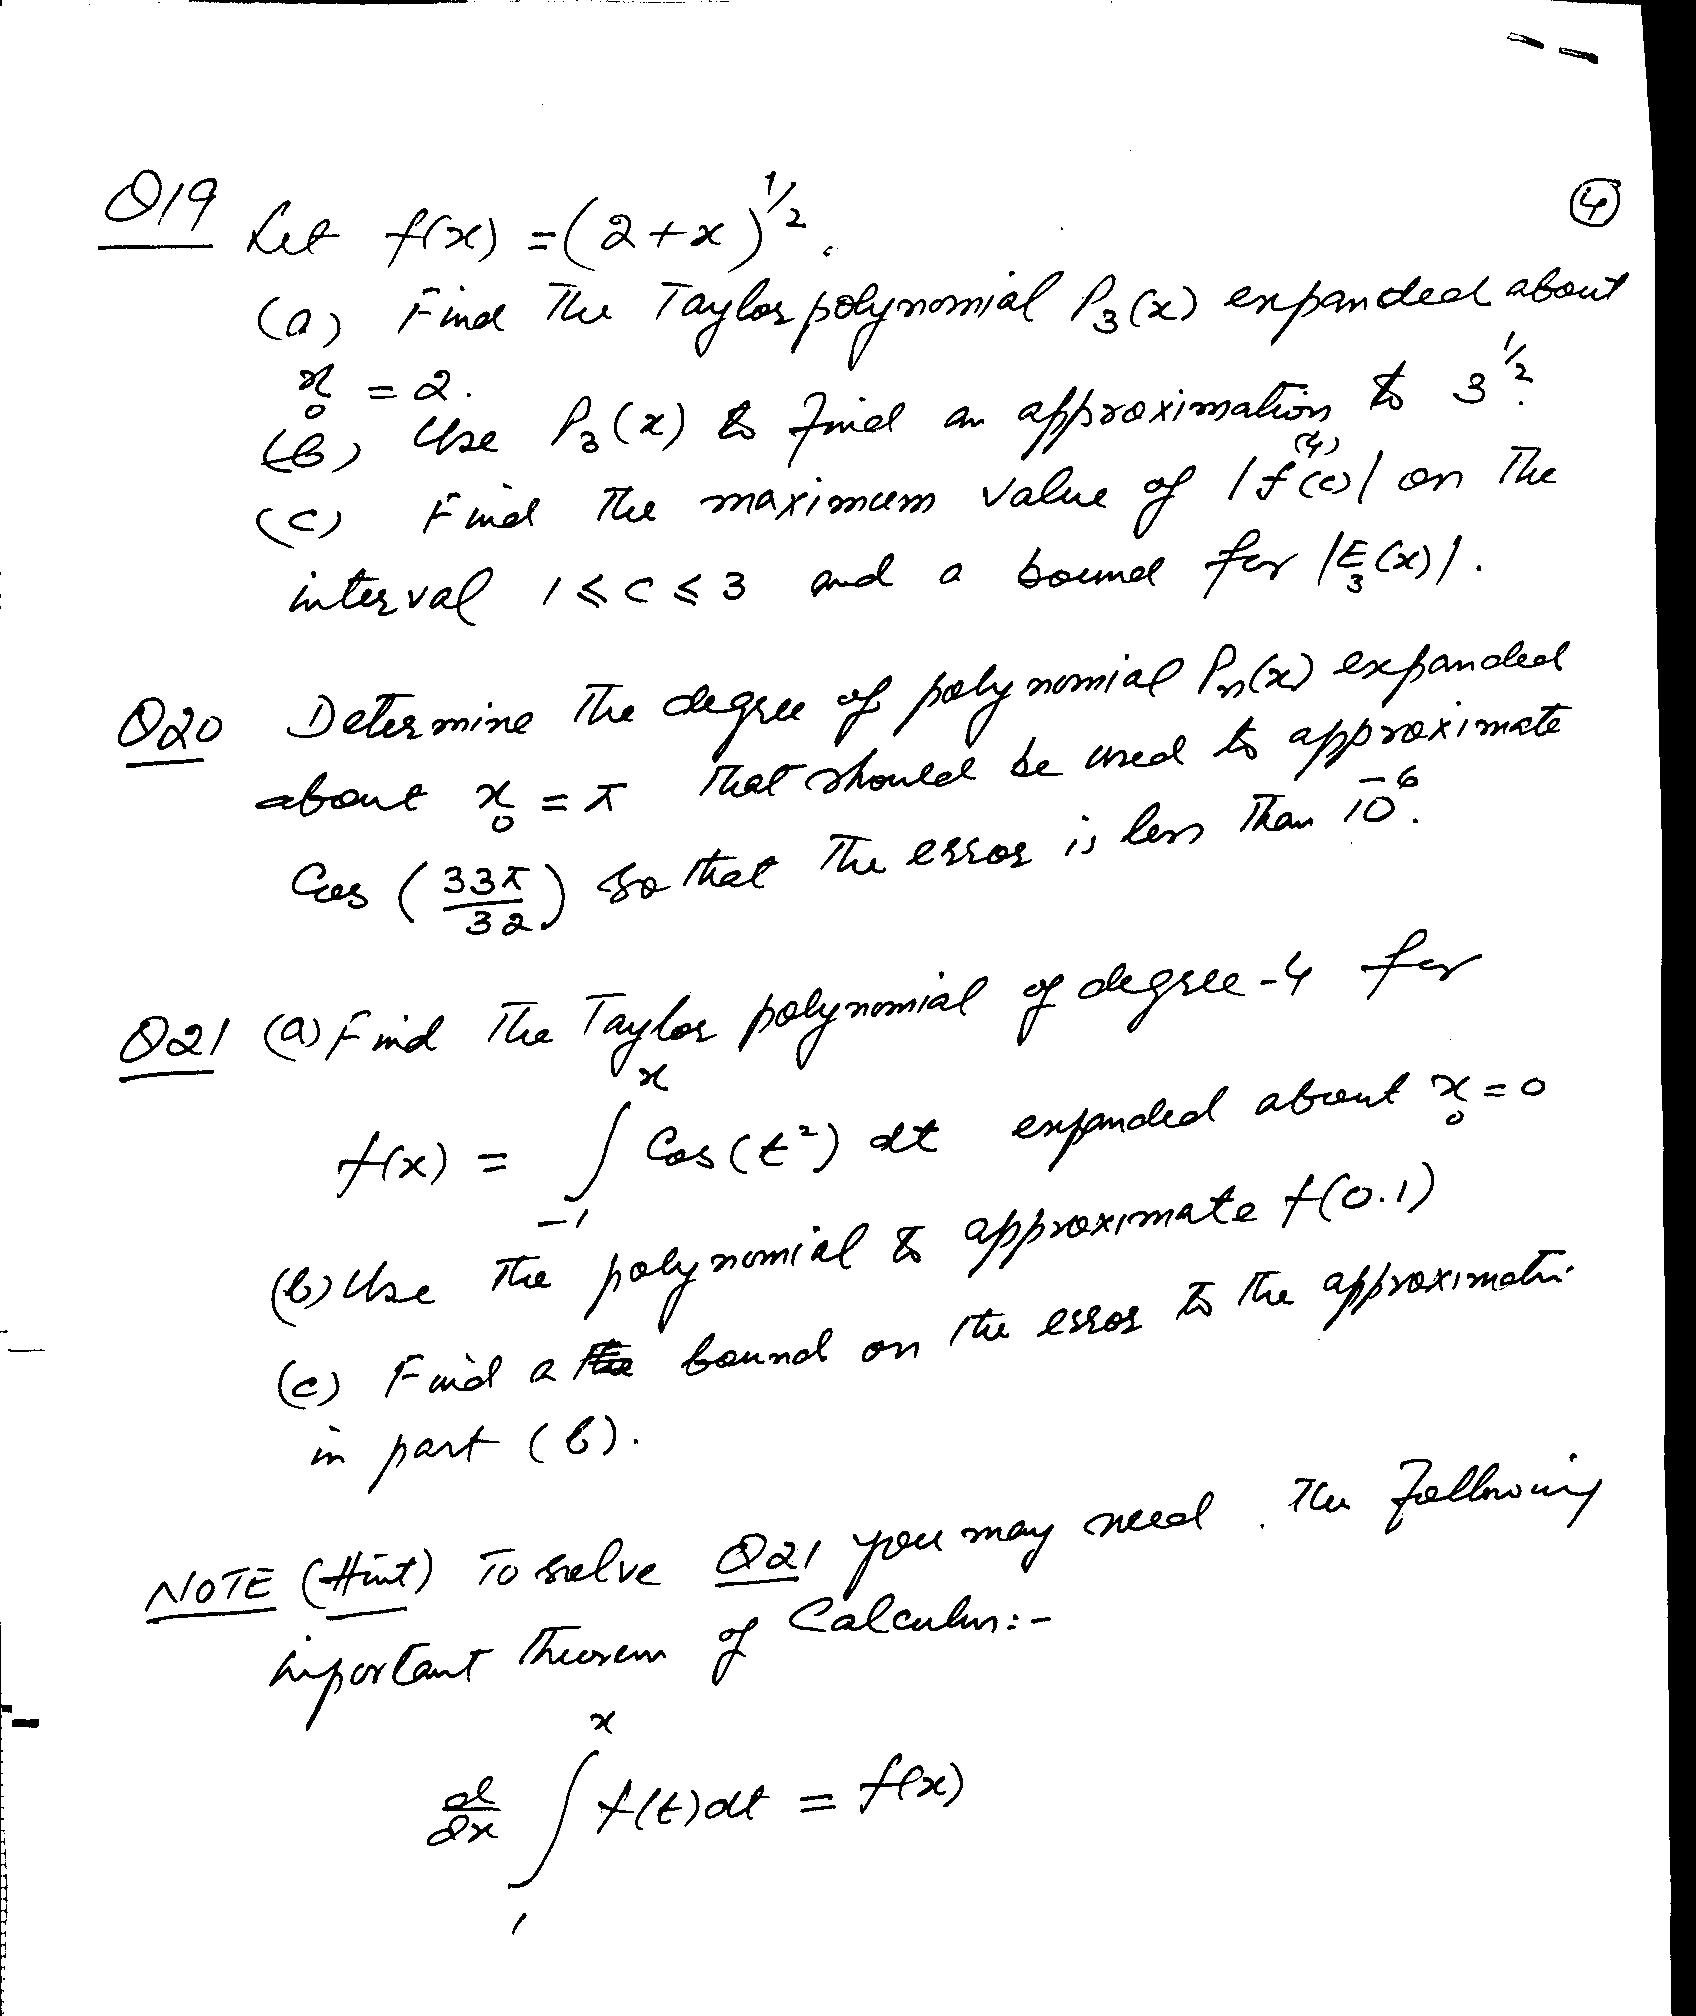 Q19 Let f(x) = (2+x)^{1/2}. ④
(a) Find The Taylor polynomial P₃(x) expanded about
x₀ = 2.
(b) Use P₃(x) to find an approximation to 3^{1/2}.
(c) Find The maximum value of |f^{(4)}(c)| on The
interval 1 ≤ c ≤ 3 and a bound for |E₃(x)|.
Q20 Determine The degree of polynomial Pₙ(x) expanded
about x₀ = π That should be used to approximate
Cos (33π/32) so that The error is less Than 10^{-6}.
Q21 (a) Find The Taylor polynomial of degree-4 for
f(x) = ∫_{-1}^{x} Cos(t²) dt expanded about x₀ = 0
(b) Use The polynomial to approximate f(0.1)
(c) Find a bound on the error to The approximati
in part (b).
NOTE (Hint) To solve Q21 you may need . The following
important Theorem of Calculus:-
d/dx ∫_{1}^{x} f(t)dt = f(x)